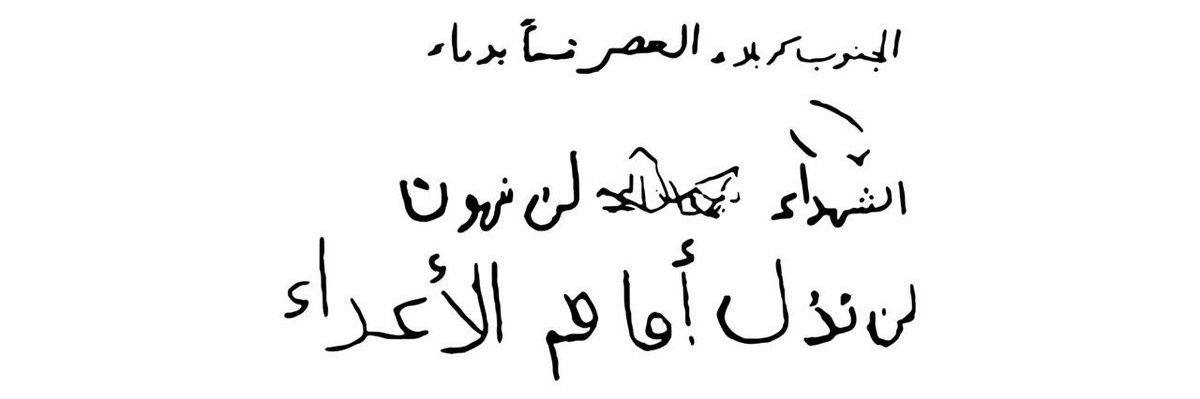 الجنوب كربلاء العصر قسماً بدماء
الشهداء لن نهون
لن نذل أمام الأعداء